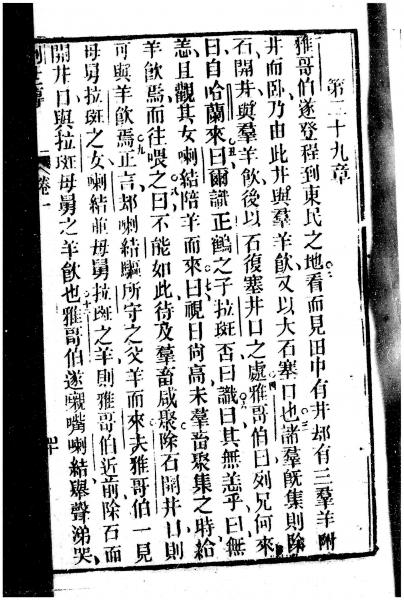 第二十九章
雅哥伯遂登程到東民之地看而見田中有井却有三羣羊附
井而卧乃由此井與羣羊飲又以大石塞口也諸羣既集則除
石開井與羣羊飲後以石復塞井口之處雅哥伯曰列兄何來
曰自哈蘭來曰爾識正鶴之子拉斑否曰識曰其無恙乎曰無
恙且觀其女喇結陪羊而來曰視日尚高未羣畜聚集之時給
羊飲焉而往喂之曰不能如此待及羣畜咸聚除石開井口則
可與羊飲焉正言却喇結驅所守之父羊而來夫雅哥伯一見
母舅拉斑之女喇結並母舅拉斑之羊則雅哥伯近前除石而
開井口與拉斑母舅之羊飲也雅哥伯遂嘴喇結舉聲涕哭
卷一